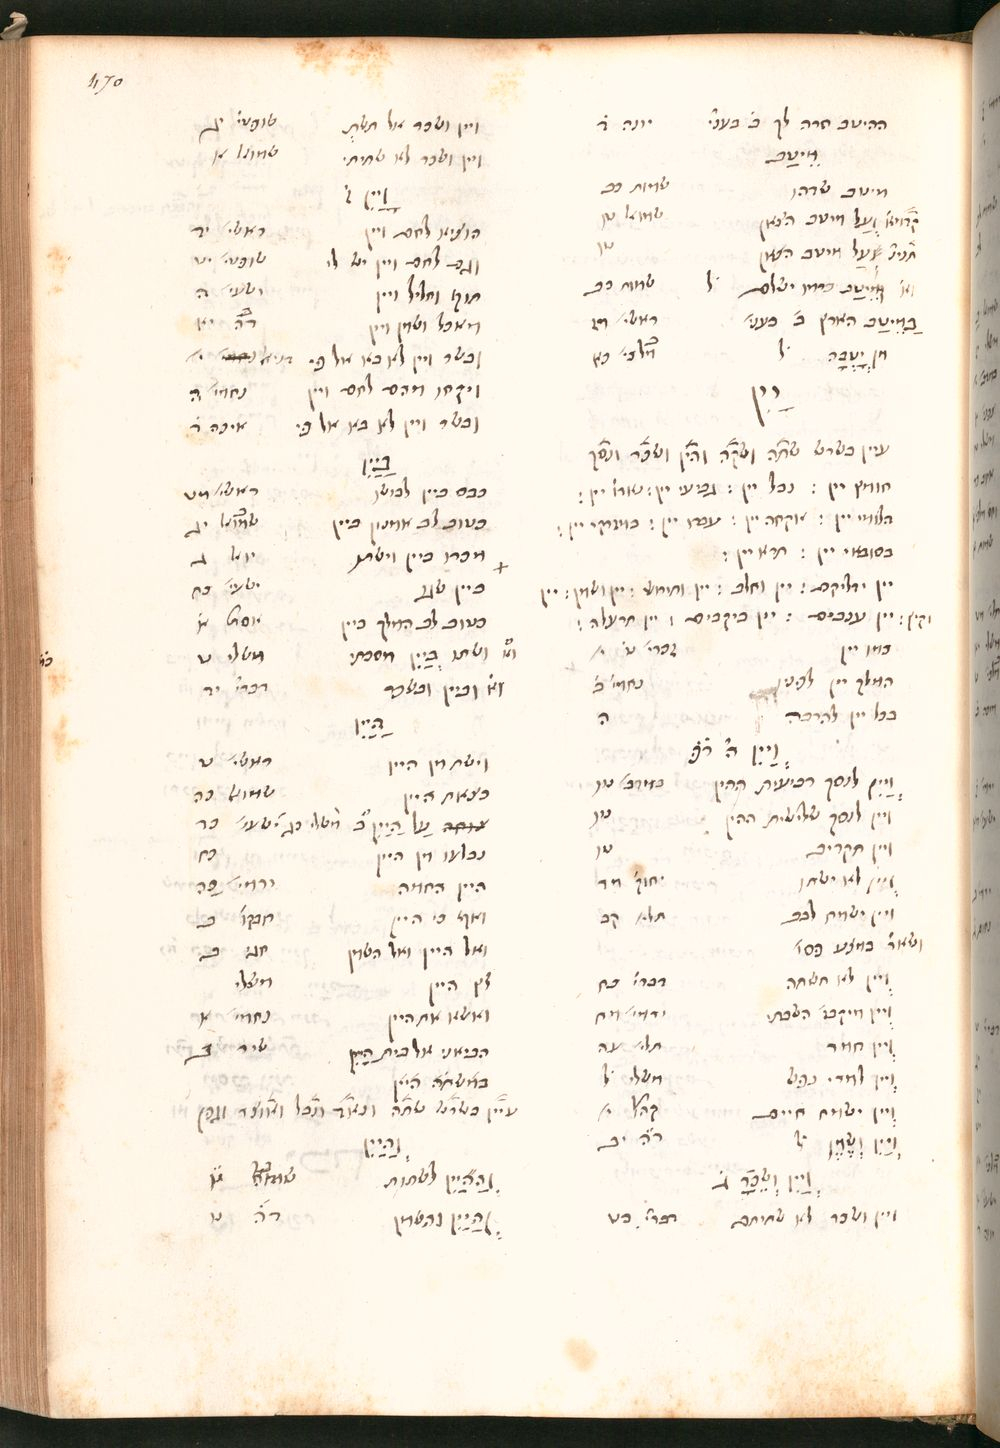 ההיטב חרה לך ב׳ בעני׳ יונה ד
מֵיטַב
מיטב שדהו שמות כב
וְעַל מיטב הצאן שמואל טו
על מיטב הצאן טו
וּמֵיטַב כרמו ישלם ל׳ שמות כב
בְּמֵיטַב הארץ ב׳ בעני׳ ראשי׳ מז
מן יָטְבָה ל׳ מלכי׳ כא
יַיִן
עיין בשרש שתה ושקה והין ושכר ונסך
חומץ יין : נבל יין : גביעי יין : נשאר יין :
הלומי יין : אוקחה יין : עברו יין : במזרקי יין :
בסובאי יין : תרא יין :
יין ידליקם : יין וחלב : יין ותירוש : יין ושמן : יין
יין ענבים : יין ביקבים : יין תרעלה :
כמו יין זכרי׳ ט׳ י׳
המלך יין לפניו נחמי׳ ב
בכל יין להרבה ה
וְיַיִן
וְיַיִן לנסך רביעית ההין במדב׳ טו
ויין לנסך שלישית ההין טו
ויין תקריב טו
וְיַיִן לא ישתו יחזק׳ מד
ויין ישמח לבב תלי׳ קד
ושאר׳ במצע פסו׳
וְיַיִן לא תשתה דברי׳ כח
וְיַיִן מיקבי׳ השבתי ירמי׳ מח
וְיַיִן חמר תלי׳ עה
וְיַיִן למרי נפש משלי ל
וְיַיִן ישמח חיים קהל׳ י׳
וְיַיִן וְשֶׁמֶן ל׳ דה יב
וְיַיִן וְשֵׁכָר ג
ויין ושכר לא שתיתם דברי׳ כט
ויין ושכר אל תשת שופטי׳ יג
ויין ושכר לא שתיתי שמואל א
וָיַיִן ז
הוציא לחם ויין ראשי׳ יד
וגם לחם ויין יש לי שופטי׳ יט
תוף וחליל ויין ישעי׳ ה
מאכל ושמן ויין דה יא
ובשר ויין לא בא אל פי דניאל י׳
ויקחו מהם לחם ויין נחמי׳ ה
ובשר ויין לא בא אל פי
בַּיַּיִן
כבס ביין לבושו ראשי׳ מט
כטוב לב אמנון ביין שמואל יג
מכרו ביין וישתו יואל ג
ביין שגו ישעי׳ כח
כטוב לב המלך ביין אסתר א
ושתו בְּיַיִן מסכתי משלי ט
וביין ובשכר דברי׳ יד
הַיַּיִן
וישת מן היין ראשי׳ ט
בצאת היין שמואל כה
צוחה עַל הַיַּיִן ב׳ משלי כג ישעי׳ כד
נבלעו מן היין כח
היין החמה ירמי׳ כה
ואף כי היין חבקו׳ ב
ואל היין ואל השמן חגי ב
לץ היין משלי
ואשא את היין נחמי׳ א
הביאני אל בית הַיַּיִן שיר ב
במשתה היין
עיין בשרש שתה
וְהַיַּיִן
וְהַיַּיִן לשתות שמואל
וְהַיַּיִן והשמן דה ט